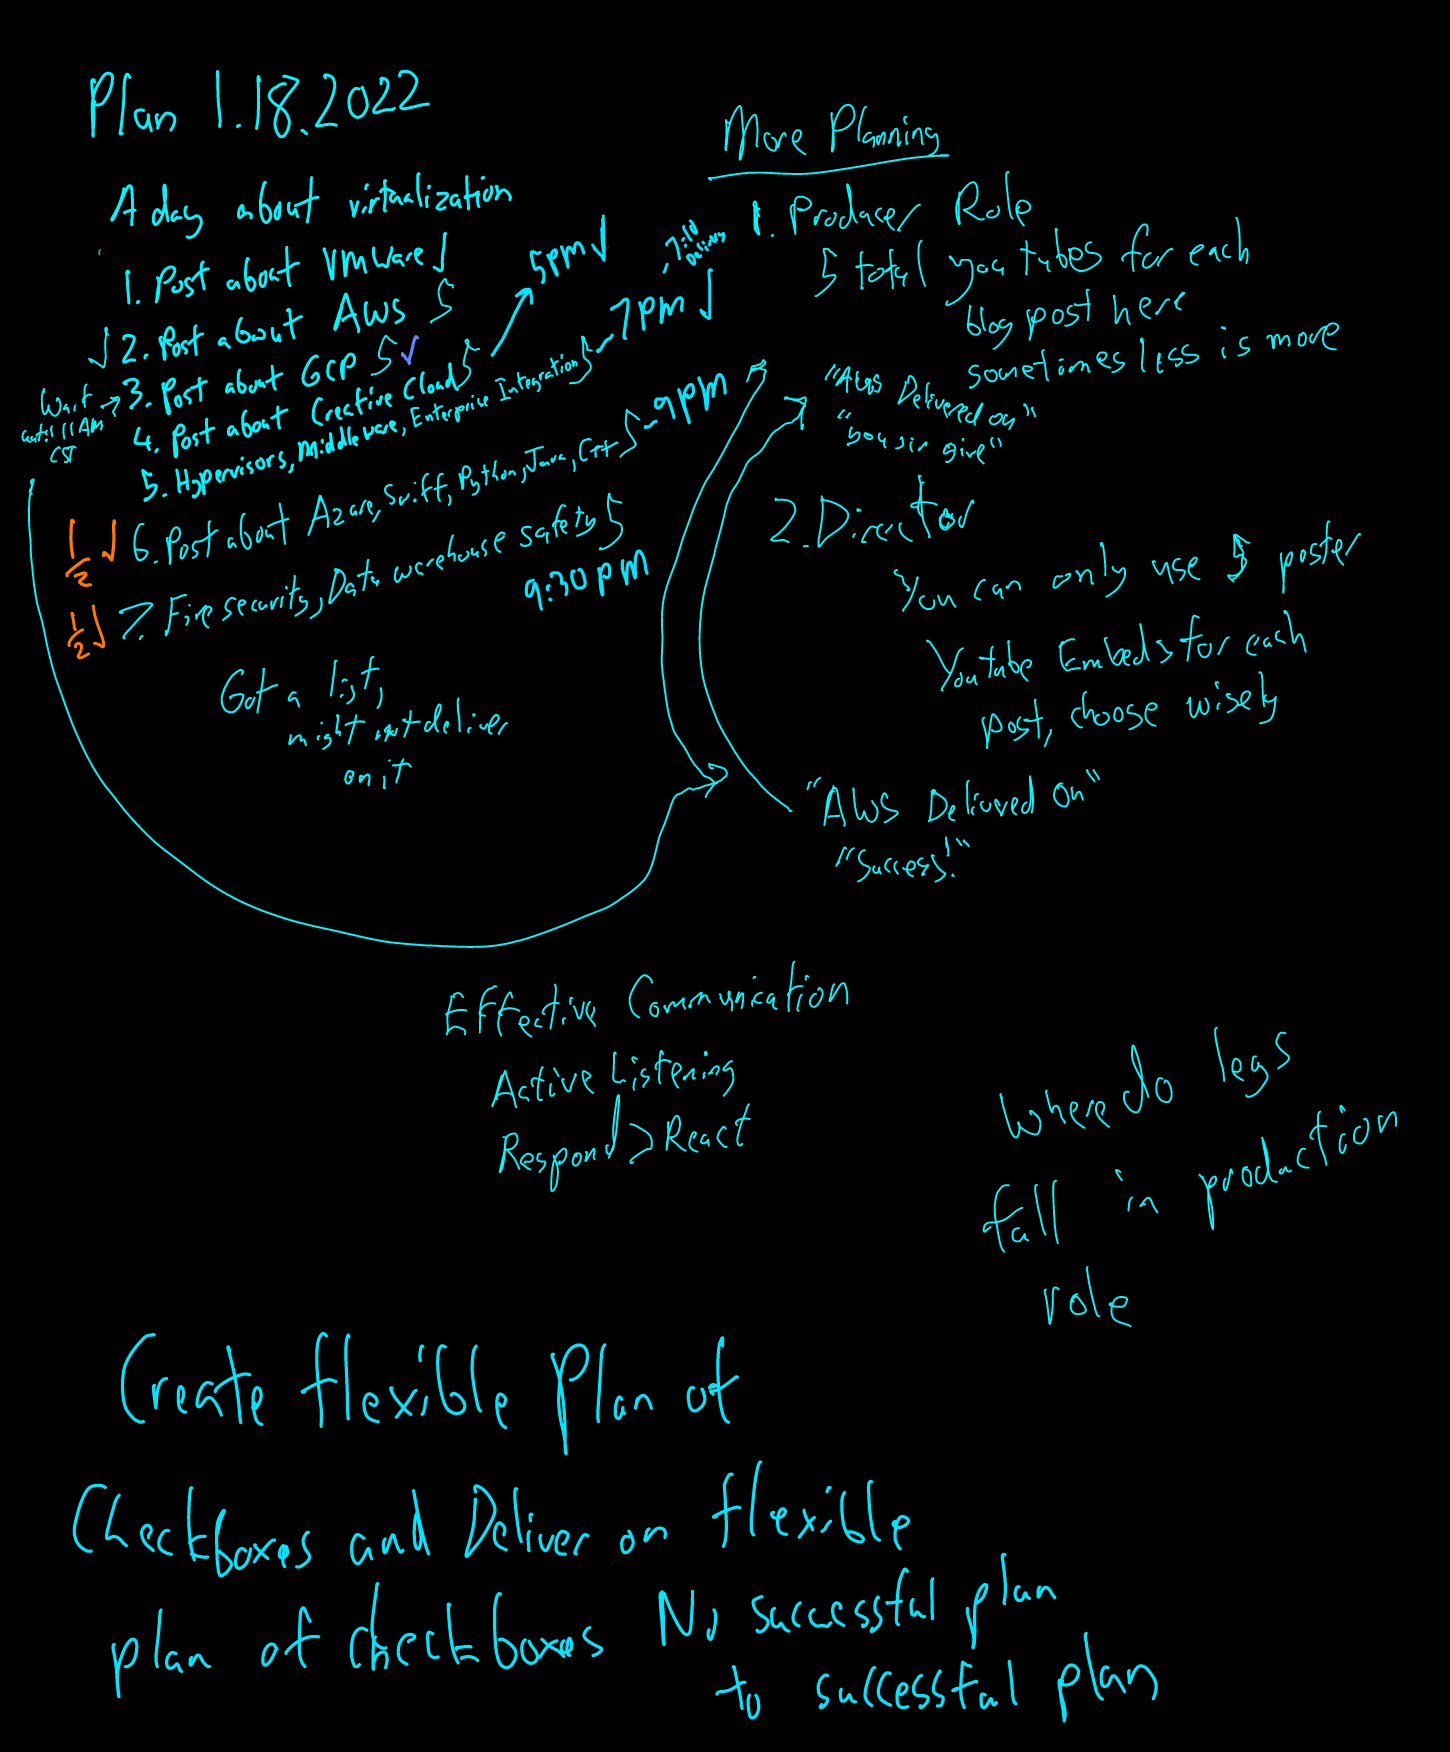 Plan 1.18.2022
A day about virtualization
1. Post about VMWare √
√ 2. Post about AWS 5
Wait until 11 AM CST → 3. Post about GCP 5 ✓
4. Post about Creative Cloud 5 → 5pm √
5. Hypervisors, Middleware, Enterprise Integration 5 - 7pm √ - 7:10 Delivery
1/2 √ 6. Post about Azure, Swift, Python, Java, C++ 5 - 9pm
1/2 √ 7. Fire security, Data warehouse safety 5
9:30pm
Got a list,
might not deliver
on it
More Planning
1. Producer Role
5 total you tubes for each
blog post here
sometimes less is more
"AWS Delivered on"
"you sir give"
2. Director
You can only use 5 poster
Youtube Embeds for each
post, choose wisely
"AWS Delivered On"
"Success!"
Effective Communication
Active Listening
Respond > React
Where do legs
fall in production
role
Create flexible Plan of
Checkboxes and Deliver on flexible
plan of checkboxes
No successful plan
to successful plan